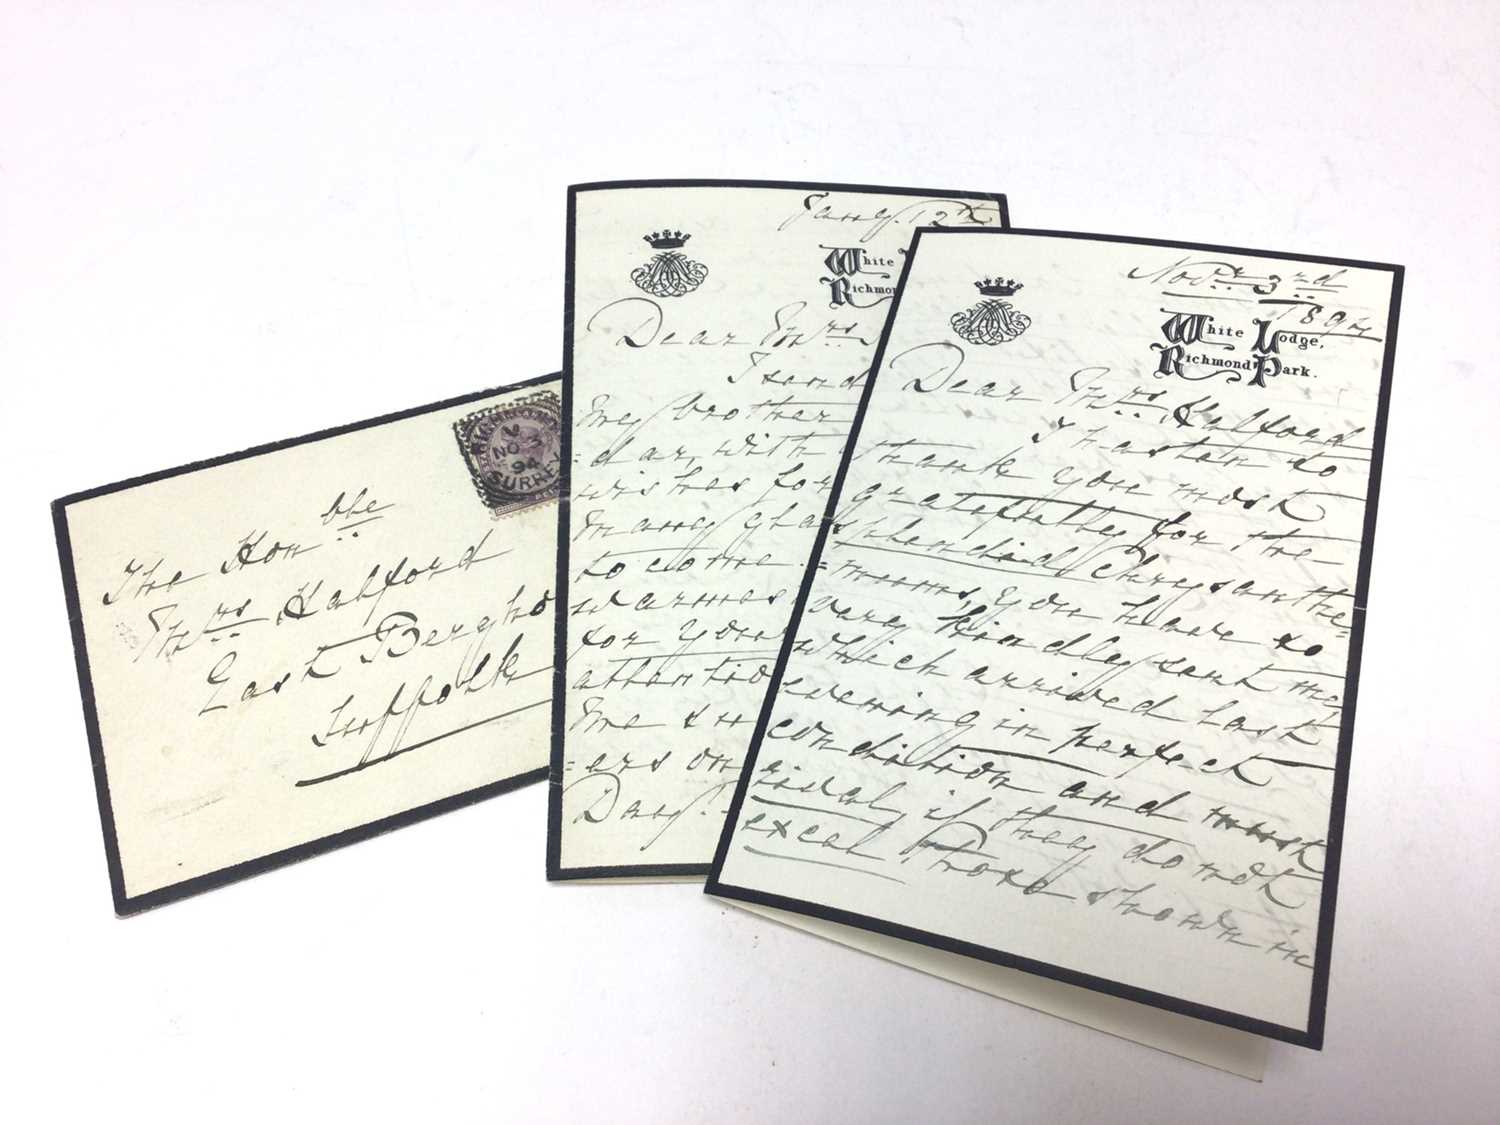 The Hon ble
Mrs Halford
East Bergho
Suffolk
RICHMOND
NO 3
94
SURREY
Jany. 12th
White
Richmon
Dear Mrs
I send
my brother
=dar, with
wishes for
many
to come.
warmest
for your
attentio
me
=ers on
Day!
Novr. 3rd
1894
White Lodge,
Richmond Park.
Dear Mrs Halford
I hasten to
thank you most
gratefully for the
splendid Chrysanthe=
=mums, you have so
very kindly sent me
which arrived last
evening in perfect
condition and must
rival, if they do not
excel those shown in